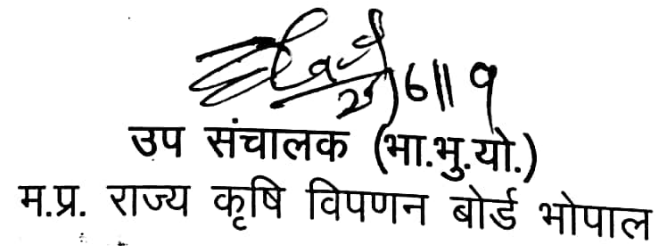 25/6/19
उप संचालक (भा.भु.यो.)
म.प्र. राज्य कृषि विपणन बोर्ड भोपाल